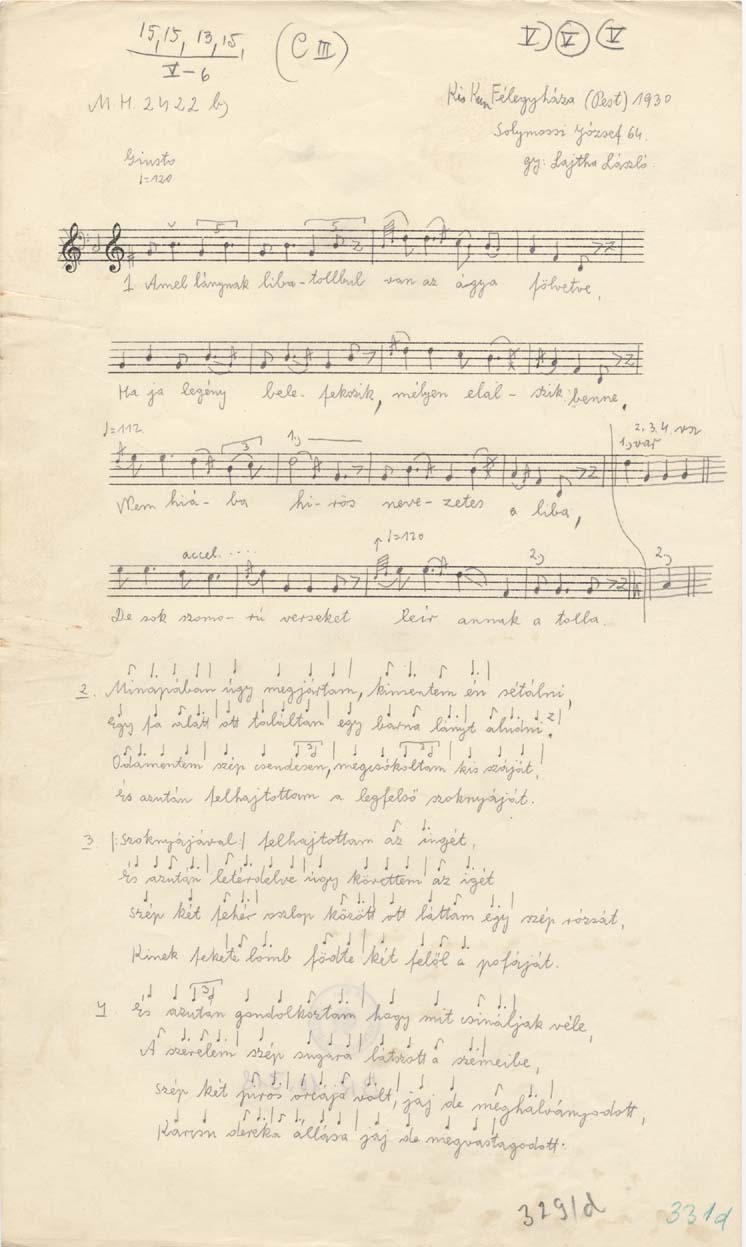 15, 15, 13, 15,
V-6
(C III)
V) V (V
M.H. 2422 b)
Kis Kun Félegyháza (Pest) 1930
Solymossi József 64.
gy: Lajtha László.
Giusto
♩=120
5 5
1 Amel lánynak liba-tollbul van az ágya fölvetve,
Ha ja legény bele-fekszik, mélyen elal-szik benne,
♩=112 3 1, 2. 3. 4. vsz
1, var
Nem hiá-ba hi-rös neve-zetes a liba,
accel. .... ♩=120 2, 2,
De sok szomo-rú verseket leír annak a tolla.
2. Minapában úgy megjártam, kimentem én sétálni,
Egy fa alatt ott találtam egy barna lányt aludni.
Odamentem szép csendesen, megcsókoltam kis száját,
És azután felhajtottam a legfelső szoknyáját.
3. |:Szoknyájával:| felhajtottam az ingét,
És azután letérdelve úgy követtem az igét
Szép két fehér oszlop között ott láttam egy szép rózsát,
Kinek fekete lomb födte két felől a pofáját.
4 És azután gondolkoztam hogy mit csináljak véle,
A szerelem szép sugára látszott a szemeibe,
Szép két piros orcája vólt, jaj de meghalványodott,
Karcsu dereka állása jaj de megvastagodott.
329/d
331d